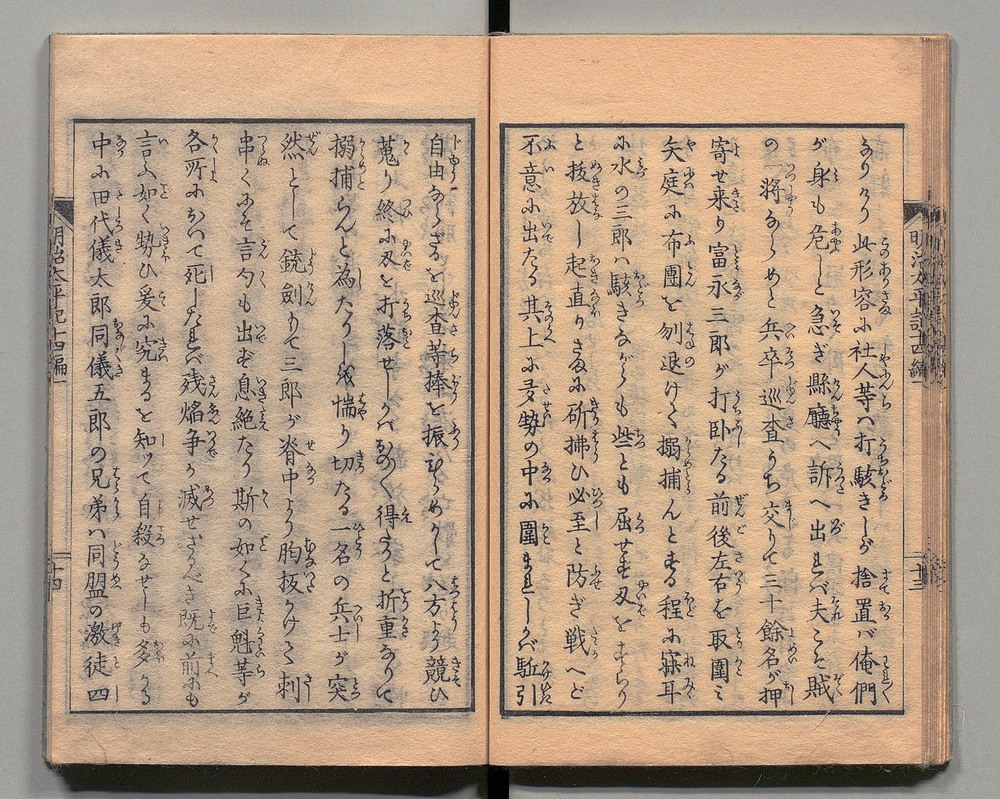 なりけり此形容に社人等ハ打駭きしが捨置バ俺們
が身も危しと急ぎ縣廳へ訴へ出れバ夫こそ賊
の一將ならめと兵卒巡査うち交りて三十餘名が押
寄せ来り富永三郎が打臥たる前後左右を取圍ミ
矢庭に布團を刎退けて搦捕んとする程に寐耳
に水の三郎ハ駭きながらも些とも屈せず刃をすらり
と抜放し起直りさまに斫拂ひ必至と防ぎ戦へど
不意に出たる其上に多勢の中に圍まれしかバ駈引
明治太平記十四編
十三
自由ならざるを巡査等捧を振ひらめかして八方より競ひ
蒐り終に刃を打落せしかバおのく得たりと折重なりて
搦捕らんと為たりしを惴り切たる一名の兵士が突
然として銃劍もて三郎が脊中より胸板かけて刺
串くにぞ言句も出ず息絶たり斯の如くに巨魁等が
各所において死したれバ残焔争か滅せざるべき既に前にも
言ふ如く勢ひ爰に究まるを知ッて自殺なせしも多かる
中に田代儀太郎同儀五郎の兄弟ハ同盟の激徒四
明治太平記十四編
十四